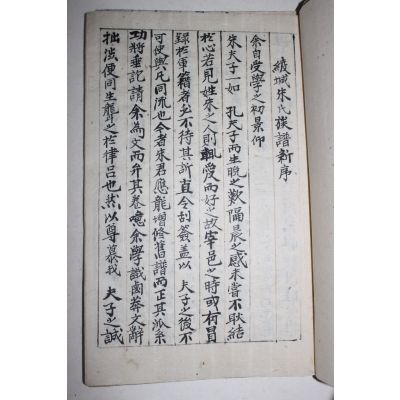 綾城朱氏族譜新序
余自受學之初景仰
朱夫子一如 孔夫子而生晩之歎隔晨之感未嘗不耿結
於心若見姓朱之人則輒愛而好之故宰邑之時或有冒
錄於軍籍者則不待其訴直令刮簽盖以 夫子之後不
可使與凡同流也今者朱君應龍增修舊譜而正其派系
功將垂訖請余為文而弁其卷噫余學識鹵莽文辭
拙澁便同生聾之於律呂也然以尊慕我 夫子之誠